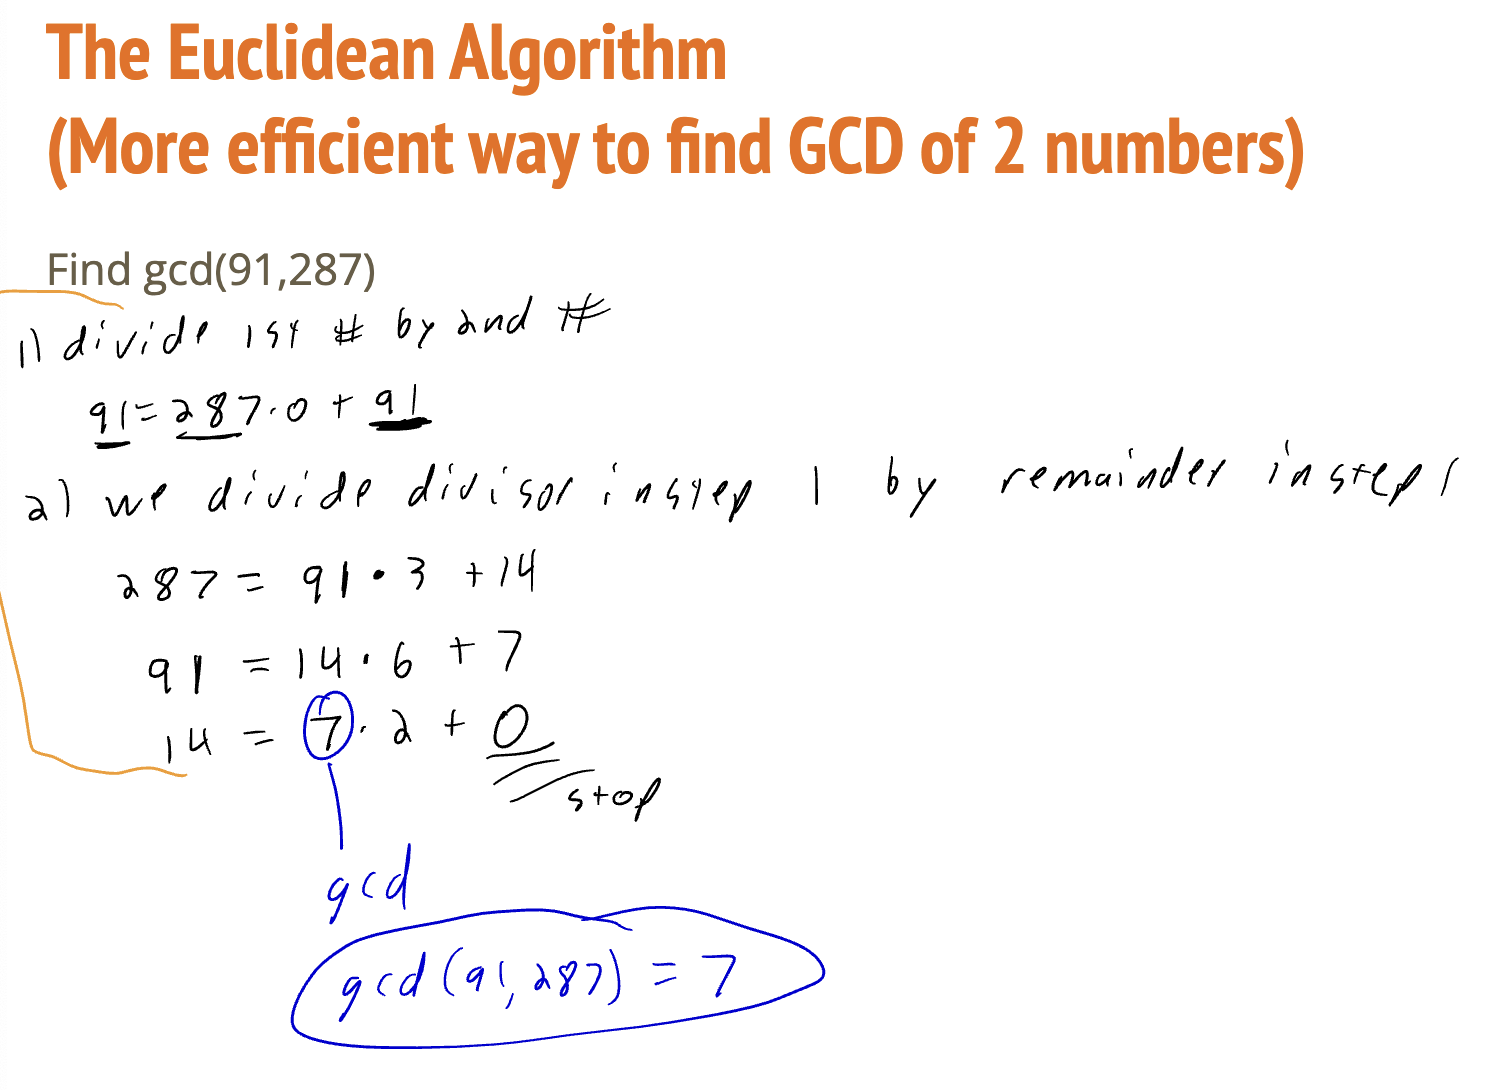 The Euclidean Algorithm
(More efficient way to find GCD of 2 numbers)
Find gcd(91,287)
1) divide 1st # by 2nd #
91=287·0+91
2) we divide divisor in step 1 by remainder in step 1
287=91·3+14
91=14·6+7
14=7·2+0
stop
gcd
gcd(91,287)=7